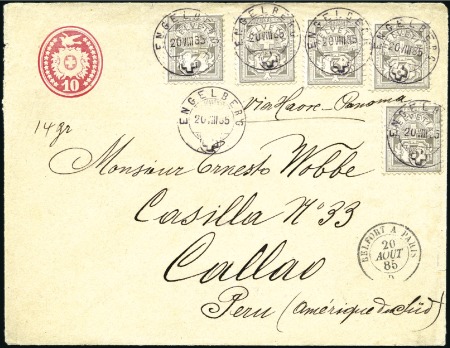 ENGELBERG ENGELBERG ENGELBERG ENGELBERG
20 VIII 85
10
ENGELBERG
20 VIII 85
Via Havre-Panama
14 gr
ENGELBERG
Monsieur Ernesto Wobbe
Casilla No 33
Callao
Peru (Amérique du Süd)
BELFORT A PARIS
20
AOUT
85